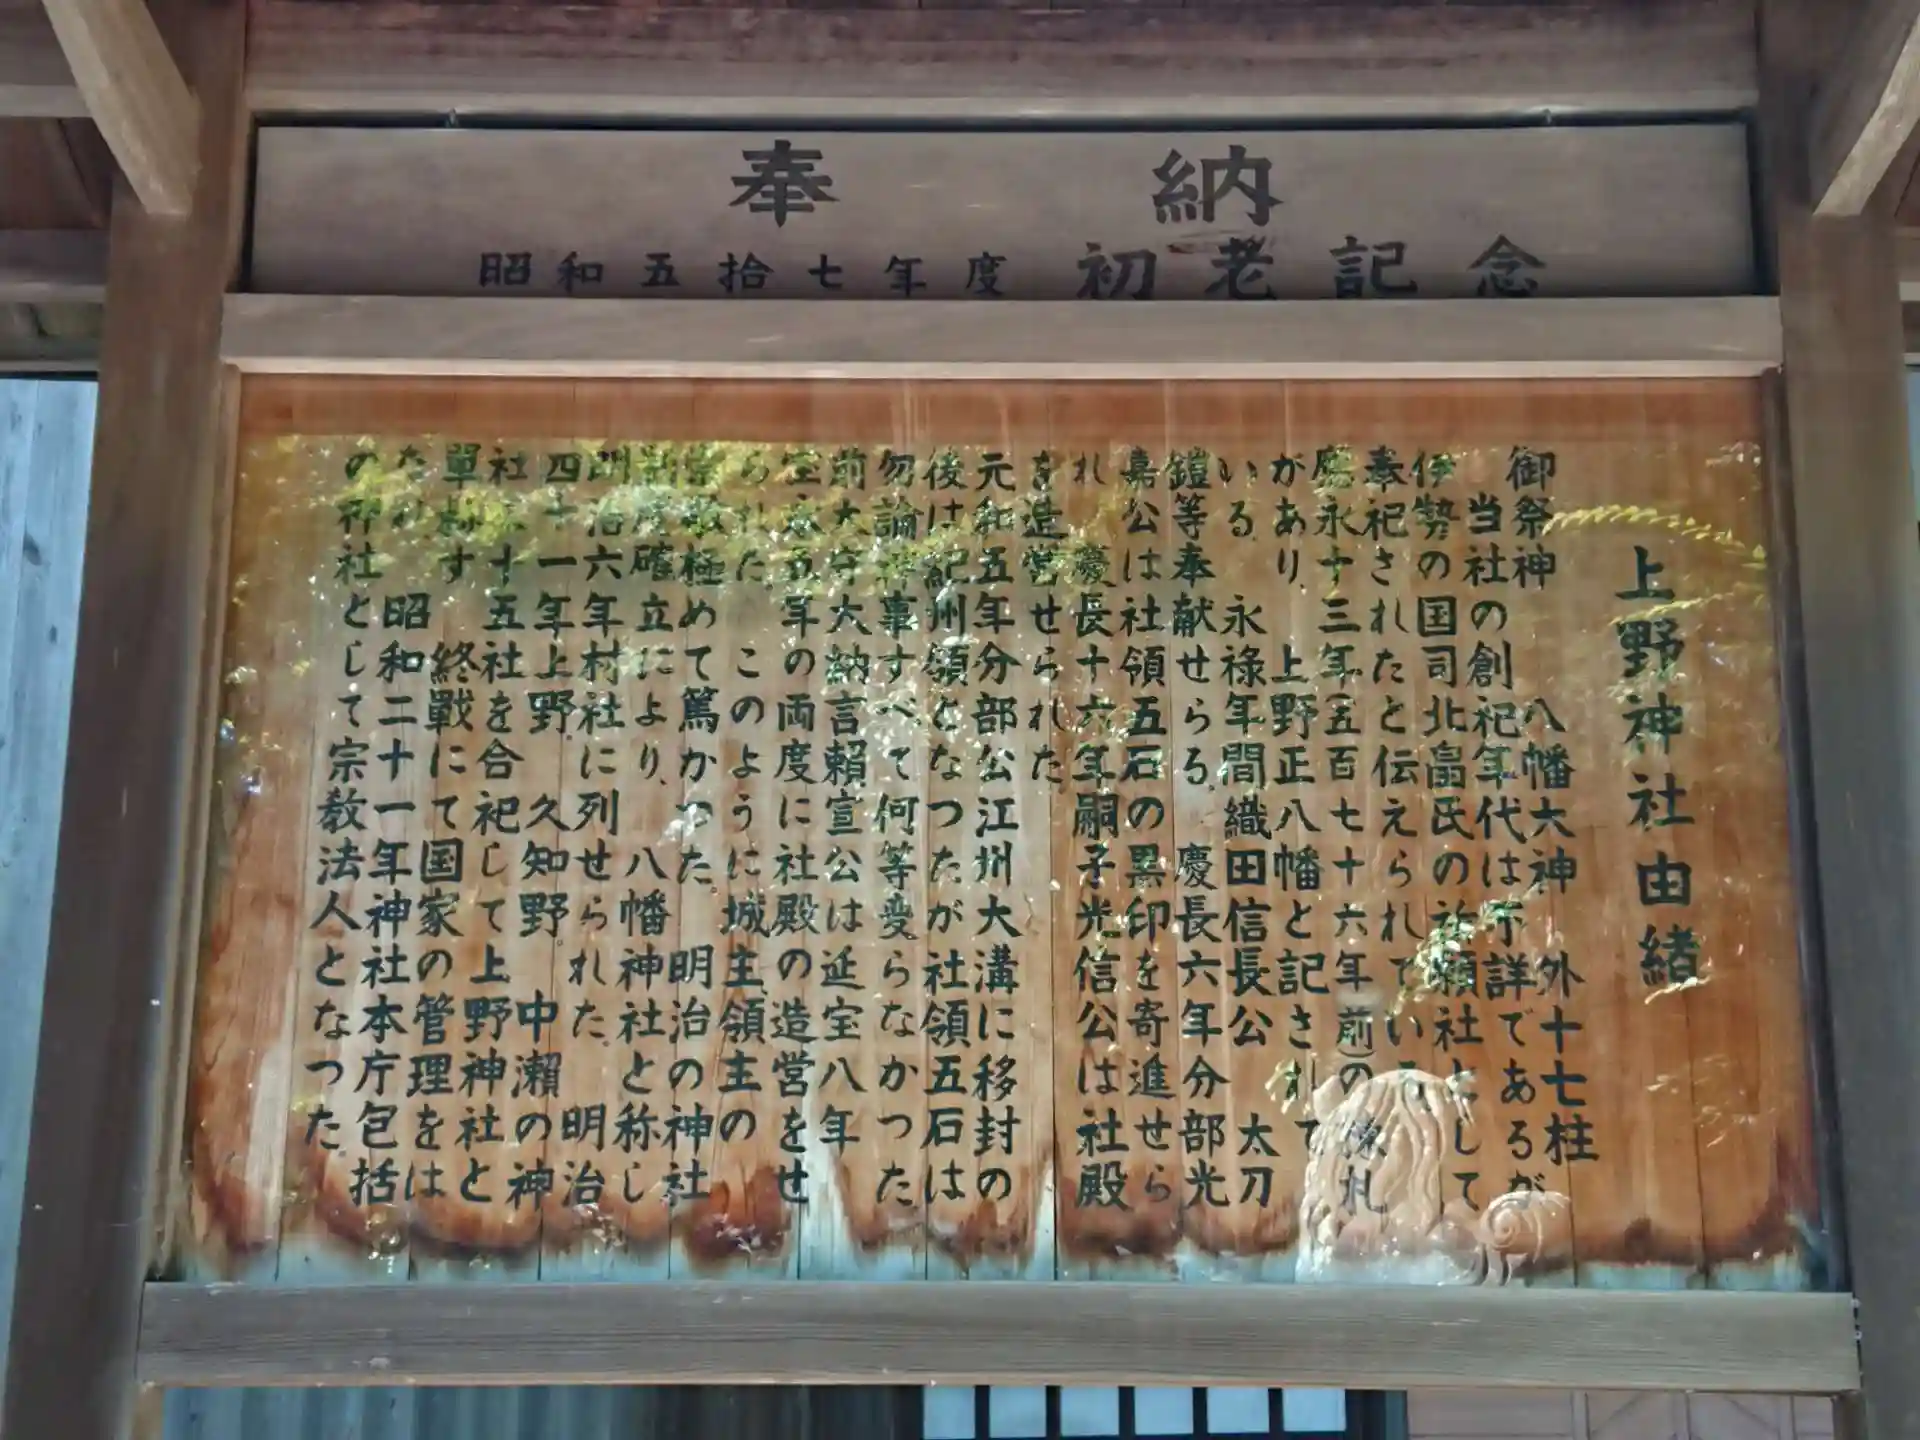 奉納
昭和五拾七年度 初老記念
上野神社由緒
御祭神 八幡大神 外十七柱
当社の創祀年代は不詳であるが
伊勢の国司北畠氏の祈願社として
奉祀されたと伝えられている
應永十三年(五百七十六年前)の棟札
があり、上野正八幡と記されて
いる 永禄年間織田信長公 太刀
鎧等奉献せらる。慶長六年分部光
嘉公は社領五石の黒印を寄進せら
れ 慶長十六年嗣子光信公は社殿
を造営せられた
元和五年分部公江州大溝に移封の
後は紀州領となつたが社領五石は
勿論神事すべて何等変らなかつた
前大守大納言頼宣公は延宝八年
宝永五年の両度に社殿の造営をせ
られた このように城主、領主の
崇敬極めて篤かつた。 明治の神社
制度確立により、八幡神社と称し
明治六年村社に列せられた。 明治
四十一年上野 久知野。中瀬の神
社 十五社を合祀して上野神社と
單称す 終戰にて国家の管理をは
た 昭和二十一年神社本庁包括
の神社として宗教法人となつた。